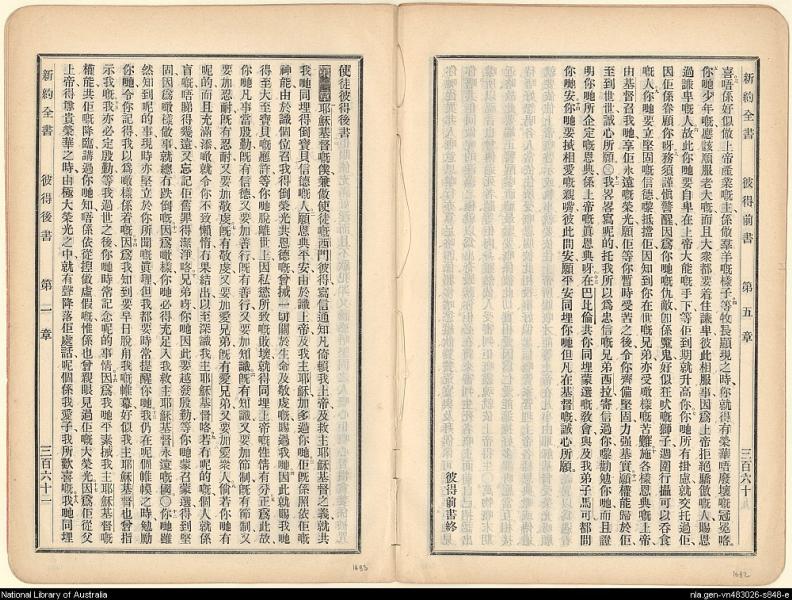 新約全書 彼得前書 第五章 三百六十
喜唔係好似做上帝產業嘅主係做羣羊嘅樣子等牧長顯現之時你就得有榮華唔廢壞嘅冠冕咯
你哋少年嘅應該順服老夫嘅而且大衆都要着住謙卑彼此相服事因爲上帝拒絕驕傲嘅人賜恩
過謙卑嘅人故此你哋要自卑在上帝大能嘅手下等佢到期就升高你你哋所有掛慮就交托過佢
因佢係眷顧你呀務須謹愼警醒因爲你哋嘅仇敵卽係魔鬼好似狂吠嘅獅子週圍行攝可以吞食
嘅人你哋要立堅固嘅信德嚟抵擋佢因知到你在世嘅兄弟亦受噉樣嘅苦難施各樣恩典嘅上帝
由基督召我哋享佢永遠嘅榮光願佢等你暫時受苦之後令你齊備堅固力强基實願權能歸於佢
到世世誠心所願〇我畧畧寫呢的托我所以爲忠信嘅兄弟西拉寄信過你嚟勸勉你哋而且證
明你哋所企定嘅恩典係上帝嘅眞恩典呀在巴比倫共你同埋蒙選嘅敎會與及我弟子馬可都問
你哋安你哋要掹相愛嘅親嘴彼此問安願平安同埋你哋但凡在基督嘅誠心所願
彼得前書終
使徒彼得後書
耶穌基督嘅僕兼做使徒嘅西門彼得寫信通知凡倚賴我上帝及救主耶穌基督之義就共
我哋同埋得倒寶貝信德嘅人願恩典平安由於識上帝及我主耶穌加多過你哋佢旣係照依佢嘅
神能由於識個位召我得倒榮光共恩德嘅曾掹一切關於生命及敬虔嘅賜過我哋因此就賜我哋
得至大至寶貝嘅應許等你哋脫離世上因私慾所致嘅敗壞就得同埋上帝嘅性情有分正爲此故
你哋凡事當殷勤旣有信德又要加善行旣有善行又要加知識旣有知識又要加節制旣有節制又
要加忍耐旣有忍耐又要加敬虔旣有敬虔又要加愛兄弟旣有愛兄弟又要加愛衆人倘若你哋有
呢的而且充滿添噉就令你哋不致懶惰冇果結出以至深識我主耶穌基督咯若冇呢的嘅個人就係
盲嘅唔睇得幾遠又忘記佢舊罪得潔淨咯兄弟呀你哋因此要越發殷勤等你哋蒙召蒙選得到堅
固因爲噉樣做事就總冇跌倒嘅因爲噉樣你哋必得充足入我救主耶穌基督永遠嘅國〇你哋雖
然知到呢的事現時亦堅立於你所聞嘅眞理但我都要時常提醒你哋我仍在呢個帷模之時勉勵
你哋令你記得我以爲噉樣係着嘅因爲我知到要早日脫甪我嘅帷幕好似我主耶穌基督也曾指
示我嘅我亦必定殷勤等我過世之後你哋時常記念呢的事情因爲我哋平素掹我主耶穌基督嘅
權能共佢嘅降臨講過你哋知唔係依從揑做虛假嘅惟係也曾親眼見過佢嘅大榮光因爲佢從父
上帝得尊貴榮華之時由極大榮光之中就有聲降落佢處話呢個係我愛子我所歡喜嘅我哋同埋
新約全書 彼得後書 第一章 三百六十一
1683
1682
National Library of Australia
nla.gen-vn483026-s848-e